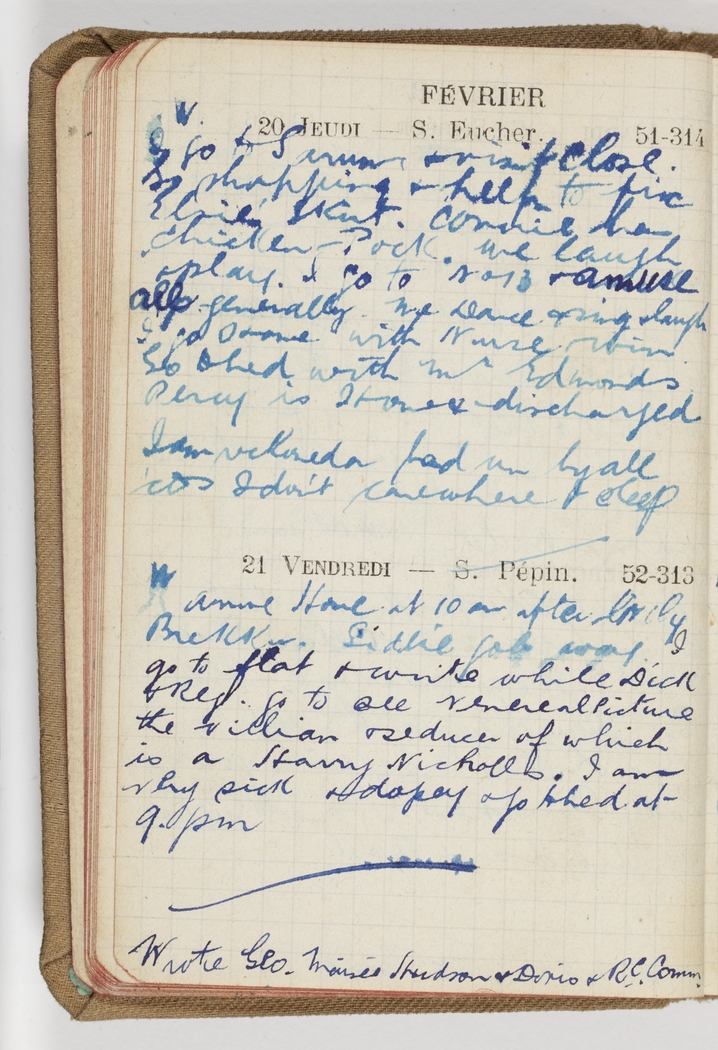 FÉVRIER
W.
20 JEUDI — S. Eucher. 51-314
I go to & visit Close.
Go shopping & help to fix
Elsie's skirt. Connie has
chicken-Pock. We laugh
& play. I go to No 13 & amuse
all generally. We Dance & sing & laugh
I go Home with Nurse
Go to bed with Mrs Edmonds
Percy is Home & discharged
I am fed up by all
its I don't care where I sleep
21 VENDREDI — S. Pépin. 52-313
W
arrive Home at 10 am after lovely
Brekker. goes away I
go to flat & write while Dick
& Reg. go to see venereal Picture
the villian & seducer of which
is a Harry Nicholls. I am
very sick & dopey & go to bed at
9. pm
Wrote Geo. Maisie Hudson & Doris & R.C. Comm.